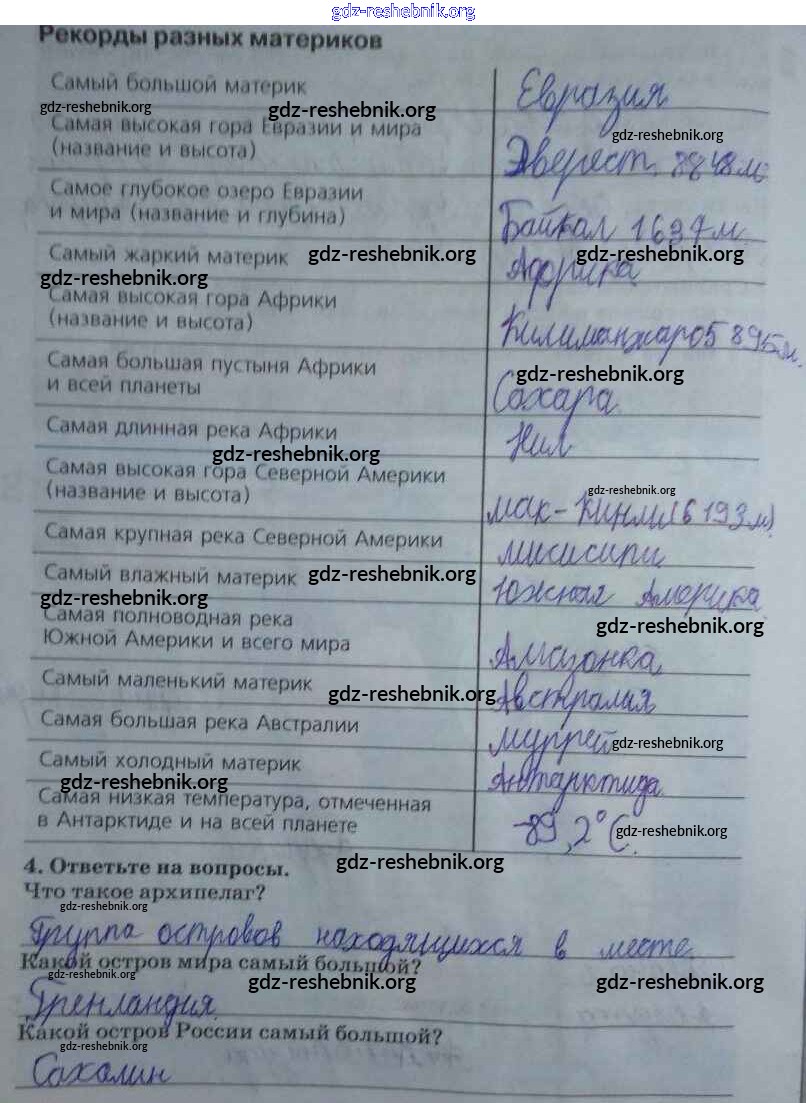 gdz-reshebnik.org
Рекорды разных материков
Самый большой материк Евразия
gdz-reshebnik.org gdz-reshebnik.org
Самая высокая гора Евразии и мира gdz-reshebnik.org
(название и высота) Эверест 8848м.
Самое глубокое озеро Евразии
и мира (название и глубина) Байкал 1637м.
Самый жаркий материк gdz-reshebnik.org gdz-reshebnik.org
gdz-reshebnik.org Африка
Самая высокая гора Африки
(название и высота) Килиманжаро 5895м.
Самая большая пустыня Африки gdz-reshebnik.org
и всей планеты Сахара
Самая длинная река Африки Нил
gdz-reshebnik.org
Самая высокая гора Северной Америки gdz-reshebnik.org
(название и высота) Мак-Кинли (6193м).
Самая крупная река Северной Америки Мисисипи
Самый влажный материк gdz-reshebnik.org Южная Америка
gdz-reshebnik.org
Самая полноводная река gdz-reshebnik.org
Южной Америки и всего мира Амазонка
Самый маленький материк gdz-reshebnik.org Австралия
Самая большая река Австралии Муррей gdz-reshebnik.org
Самый холодный материк Антарктида
gdz-reshebnik.org
Самая низкая температура, отмеченная
в Антарктиде и на всей планете -89,2°С. gdz-reshebnik.org
4. Ответьте на вопросы. gdz-reshebnik.org
Что такое архипелаг?
gdz-reshebnik.org
Группа островов находящихся в месте
Какой остров мира самый большой?
gdz-reshebnik.org gdz-reshebnik.org gdz-reshebnik.org
Гренландия.
Какой остров России самый большой?
gdz-reshebnik.org
Сахалин